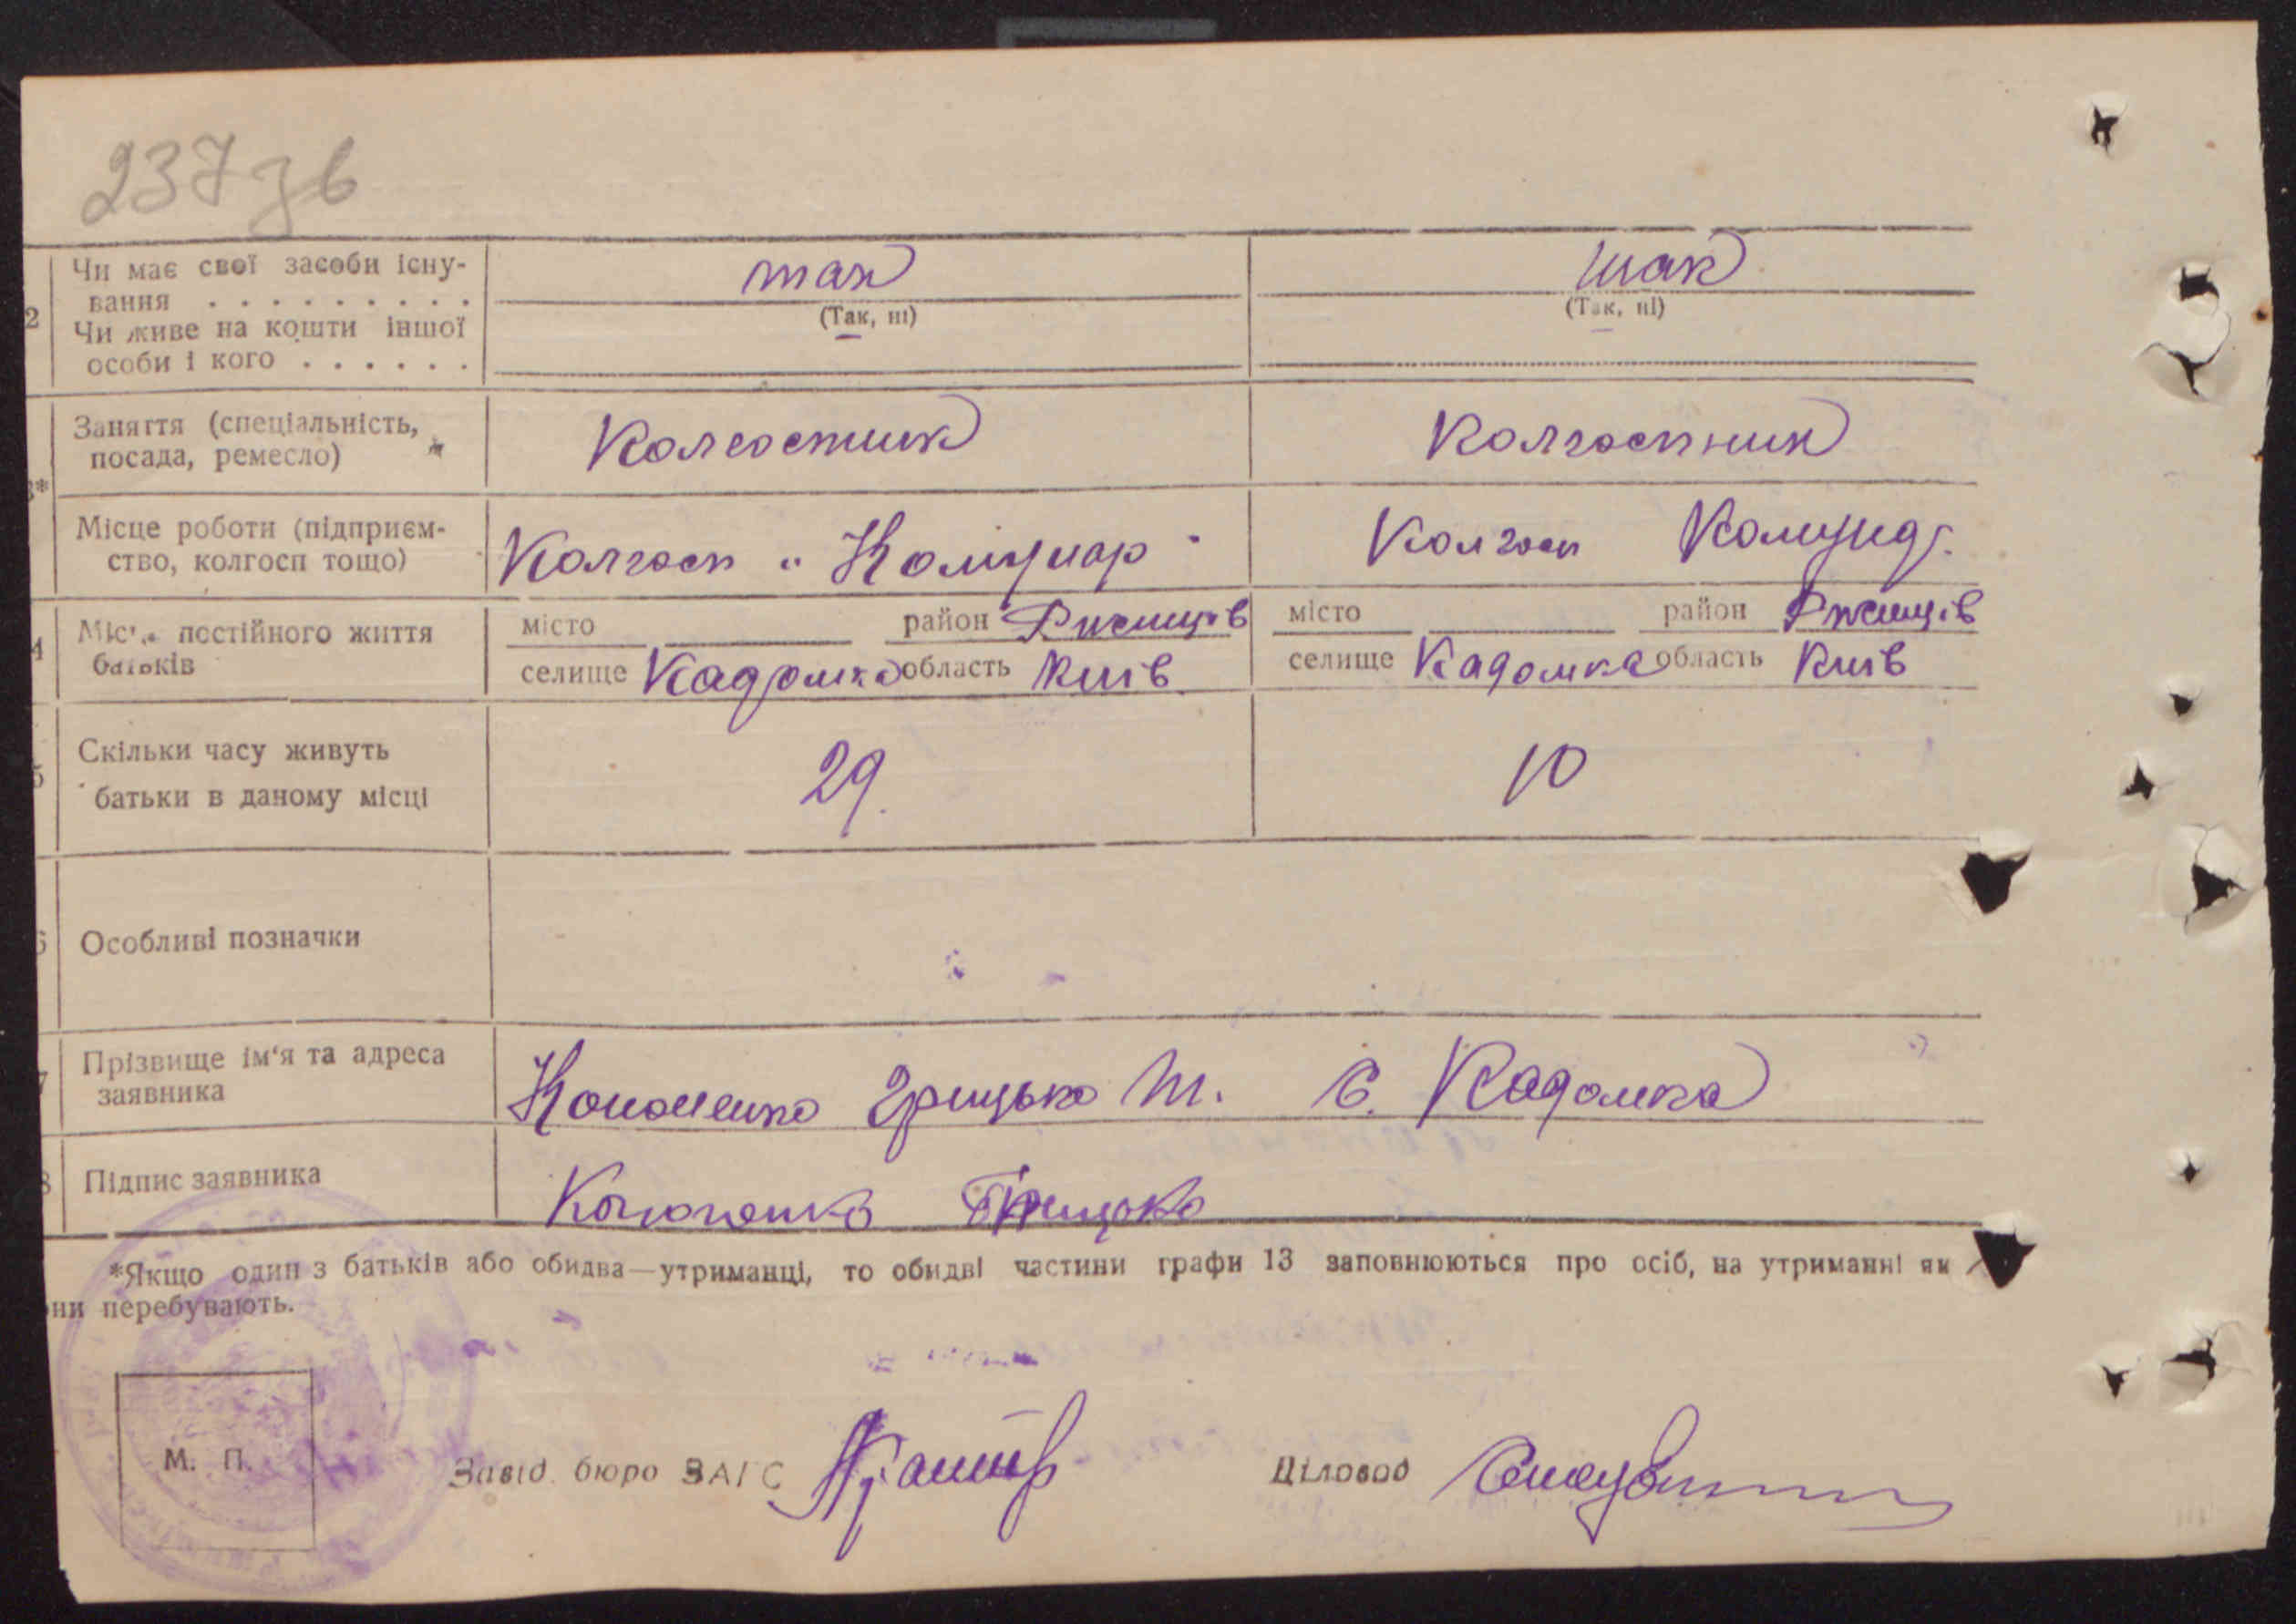 237 зв
2 Чи має свої засоби існу-
вання . . . . . . . . . так так
(Так, ні) (Так, ні)
Чи живе на кошти іншої
особи і кого . . . . . .
3* Заняття (спеціальність,
посада, ремесло) Колгоспник Колгоспник
Місце роботи (підприєм-
ство, колгосп тощо) Колгосп „ Комунар " Колгосп
4 Місце постійного життя
батьків
місто район Ржищів місто район Ржищів
селище Кадомка область Київ селище Кадомка область Київ
5 Скільки часу живуть
батьки в даному місці 29. 10
6 Особливі позначки
7 Прізвище ім'я та адреса
заявника Кононенко Грицько Т. С. Кадомка
8 Підпис заявника Кононенко Грицько
*Якщо один з батьків або обидва—утриманці, то обидві частини графи 13 заповнюються про осіб, на утриманні як
они перебувають.
М. П. Завід. бюро ЗАГС Діловод